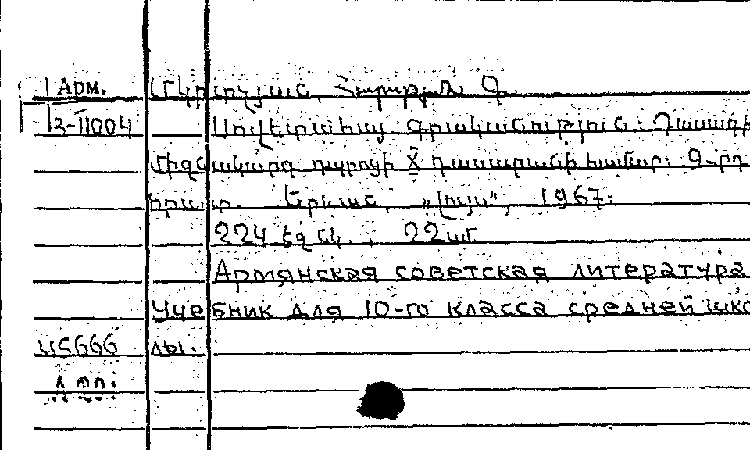 Арм. Մկրտչյան, Հայրիկ Գ.
3-11004 Սովետահայ գրականություն: Դասագիրք
միջնակարգ դպրոցի X դասարանի համար: 9-րդ
հրատ. Երևան, „Լույս", 1967.
224 էջ նկ.; 22սմ
Армянская советская литература
Учебник для 10-го класса средней шко
45666 лы.